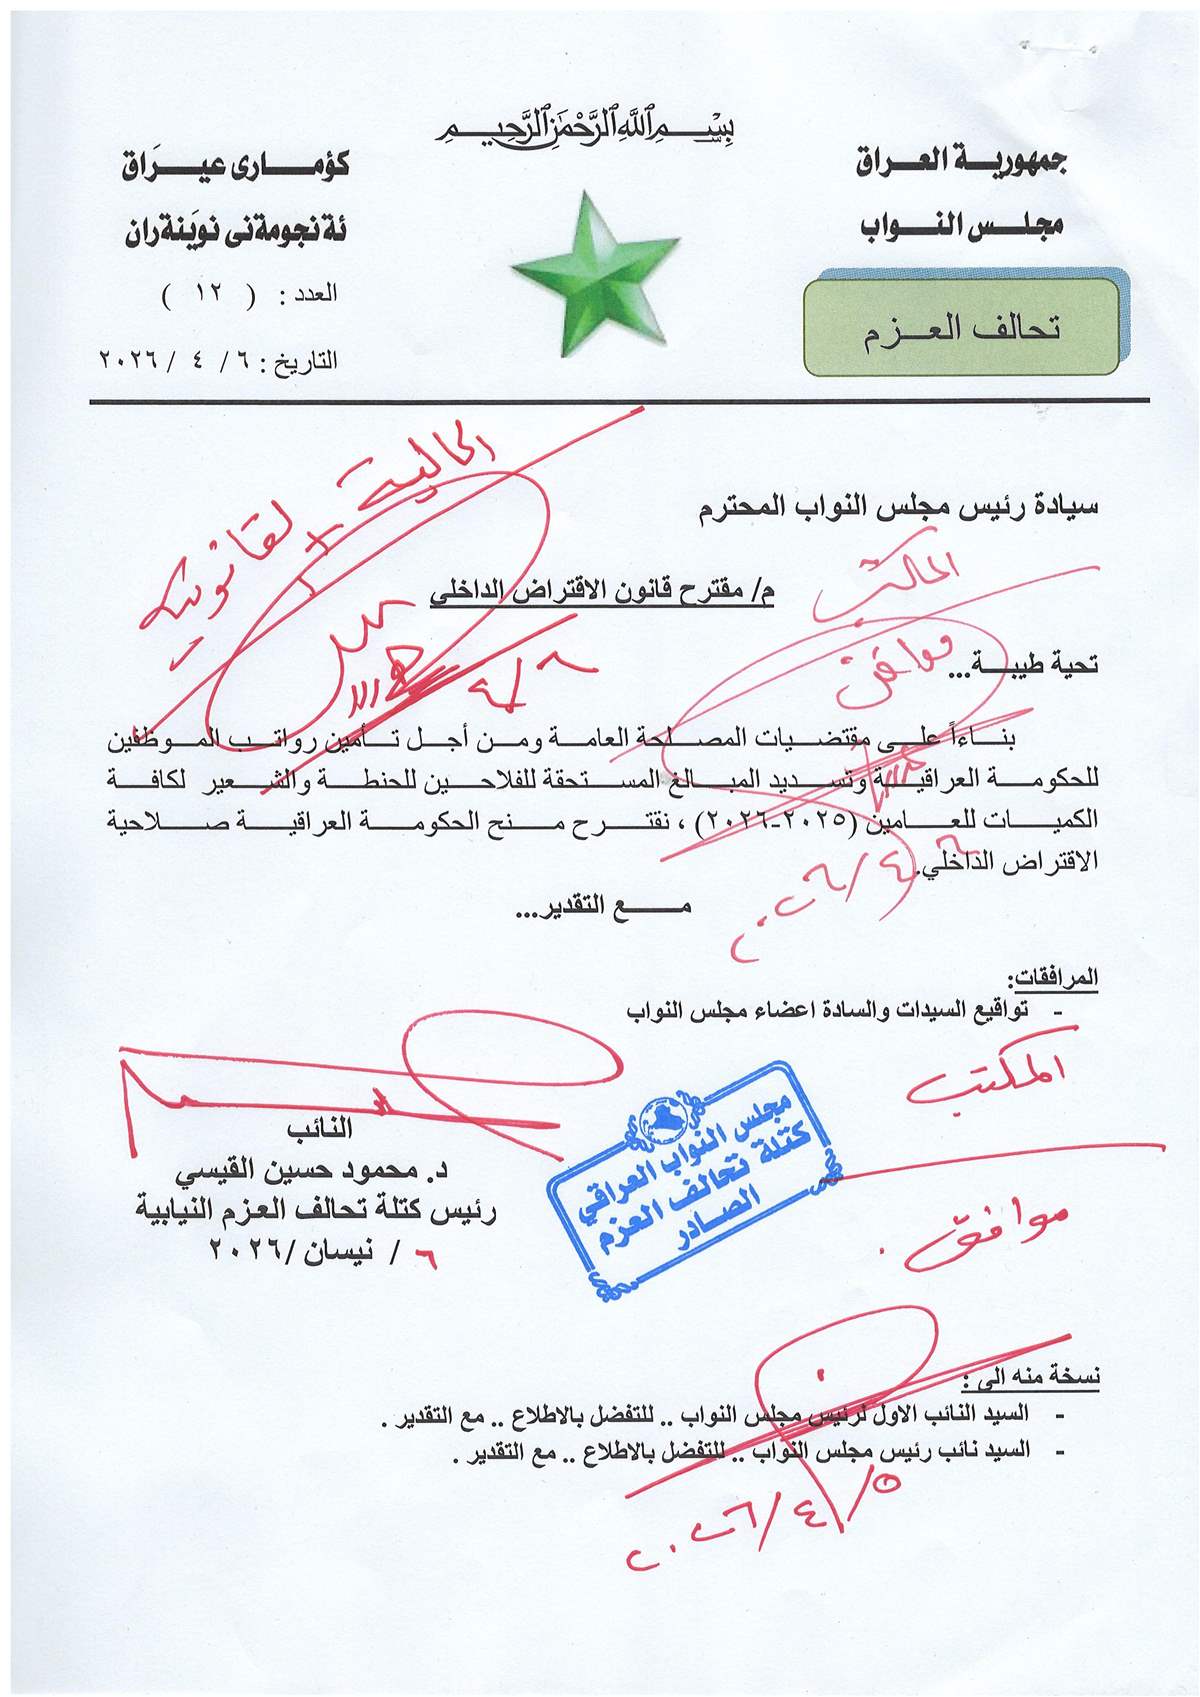 بسم الله الرحمن الرحيم
جمهورية العراق
مجلس النواب
تحالف العزم
كؤمارى عيراق
ئة نجومةنى نوينةران
العدد : ( ١٢ )
التاريخ : ٦ / ٤ / ٢٠٢٦
المالية
القانونية
٤/٦
سيادة رئيس مجلس النواب المحترم
م/ مقترح قانون الاقتراض الداخلي
المكتب
موافق
تحية طيبة...
بناءاً على مقتضيات المصلحة العامة ومن أجل تأمين رواتب الموظفين
للحكومة العراقية وتسديد المبالغ المستحقة للفلاحين للحنطة والشعير لكافة
الكميات للعامين (٢٠٢٥-٢٠٢٦) ، نقترح منح الحكومة العراقية صلاحية
الاقتراض الداخلي.
٦/٤/٢٠٢٦
مع التقدير...
المرافقات:
- تواقيع السيدات والسادة اعضاء مجلس النواب
المكتب
موافق .
النائب
د. محمود حسين القيسي
رئيس كتلة تحالف العزم النيابية
٦ / نيسان /٢٠٢٦
مجلس النواب العراقي
كتلة تحالف العزم
الصادر
نسخة منه الى :
- السيد النائب الاول لرئيس مجلس النواب .. للتفضل بالاطلاع .. مع التقدير .
- السيد نائب رئيس مجلس النواب .. للتفضل بالاطلاع .. مع التقدير .
٥/٤/٢٠٢٦